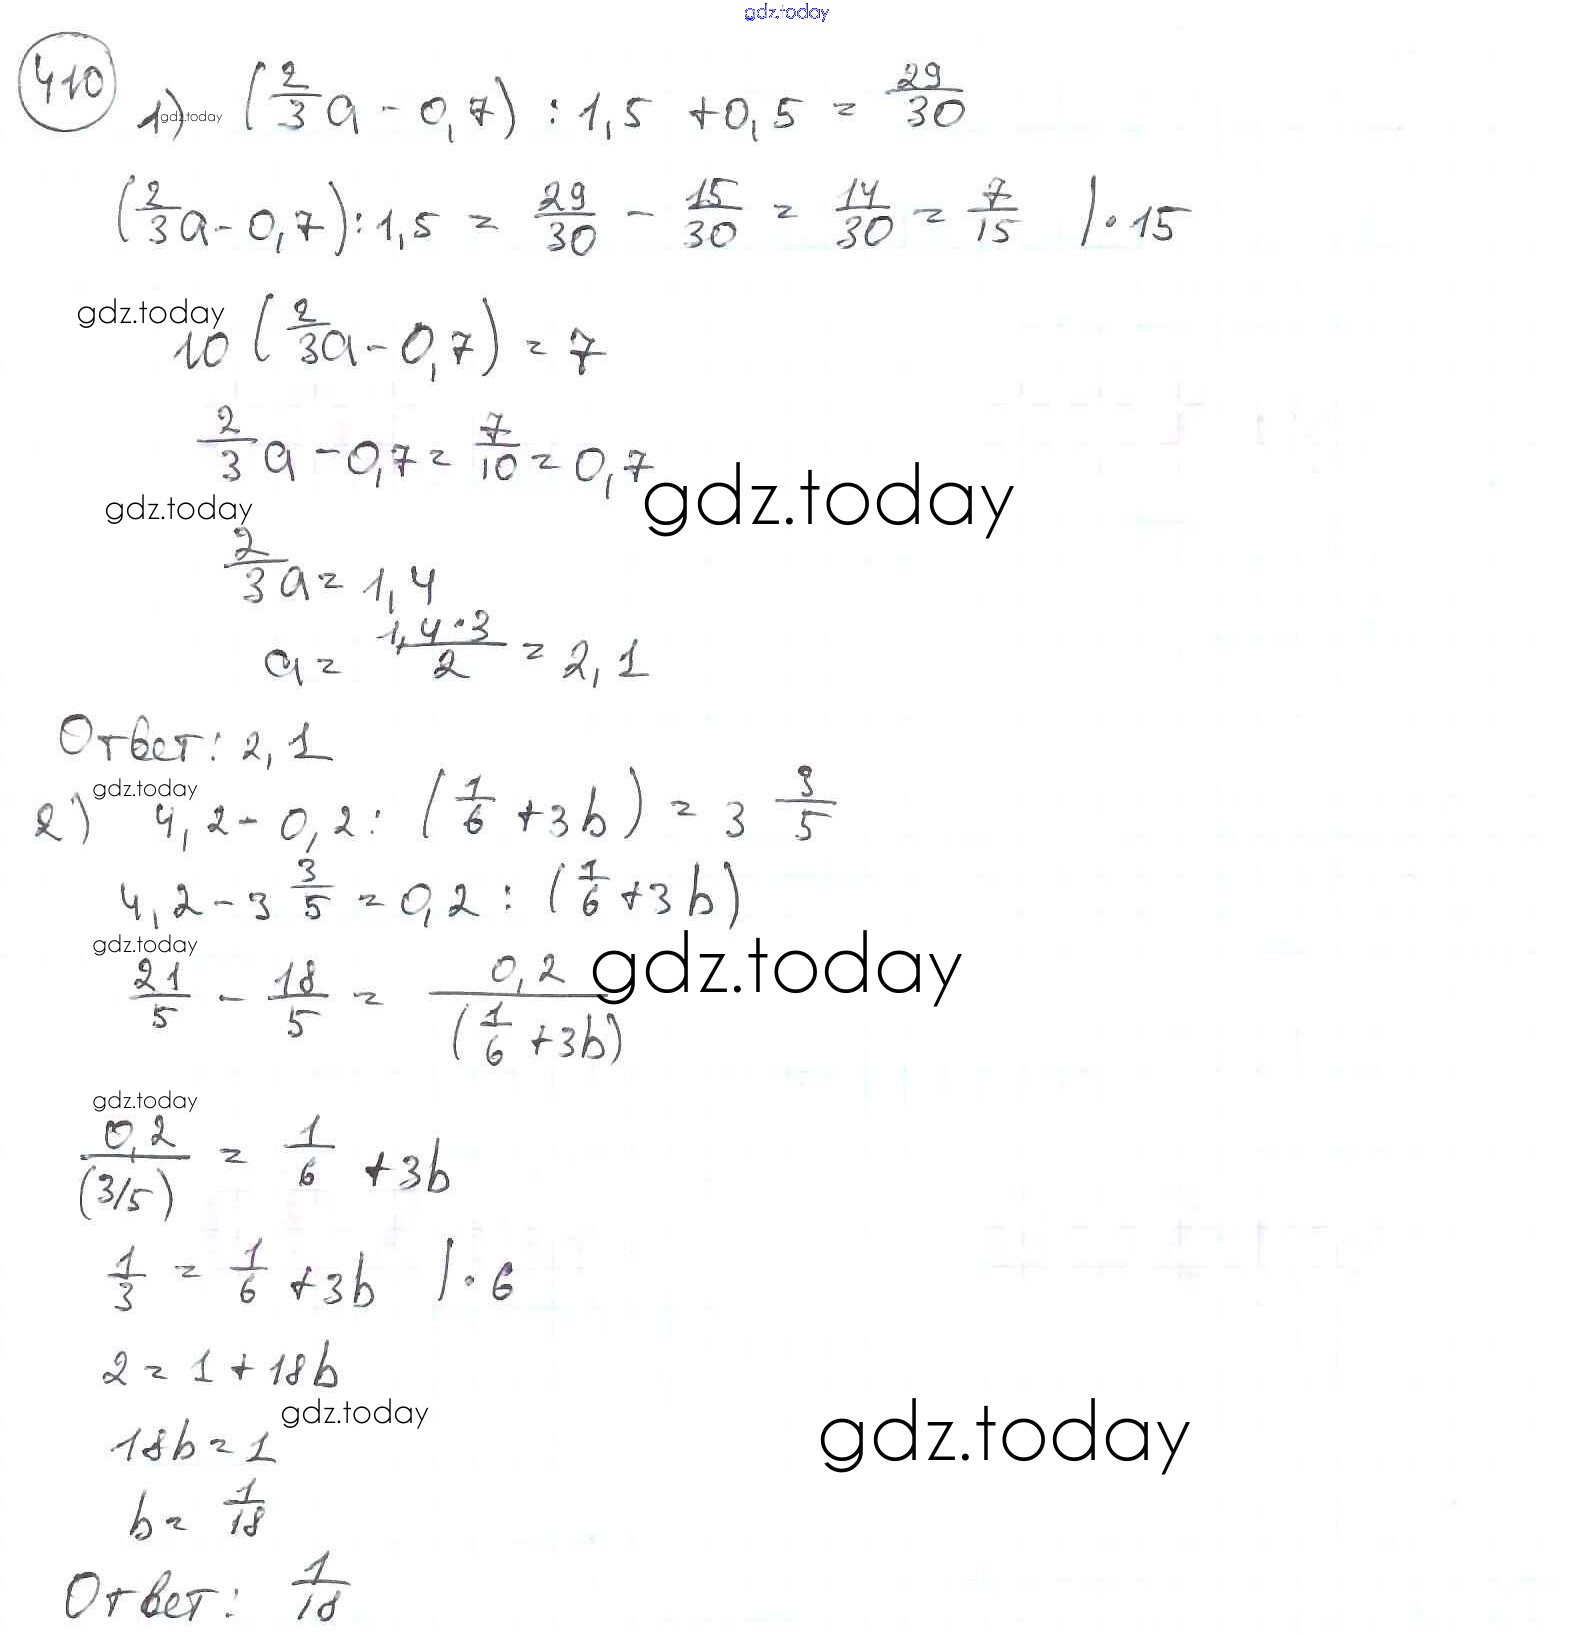 gdz.today
410
1) (2/3 a - 0,7) : 1,5 + 0,5 = 29/30
gdz.today
(2/3 a - 0,7) : 1,5 = 29/30 - 15/30 = 14/30 = 7/15 | · 15
gdz.today
10 (2/3 a - 0,7) = 7
2/3 a - 0,7 = 7/10 = 0,7
gdz.today
gdz.today
2/3 a = 1,4
a = 1,4·3/2 = 2,1
Ответ: 2,1
gdz.today
2) 4,2 - 0,2 : (1/6 + 3b) = 3 3/5
4,2 - 3 3/5 = 0,2 : (1/6 + 3b)
gdz.today
gdz.today
21/5 - 18/5 = 0,2/(1/6 + 3b)
gdz.today
0,2/(3/5) = 1/6 + 3b
1/3 = 1/6 + 3b | · 6
2 = 1 + 18b
gdz.today
gdz.today
18b = 1
b = 1/18
Ответ: 1/18